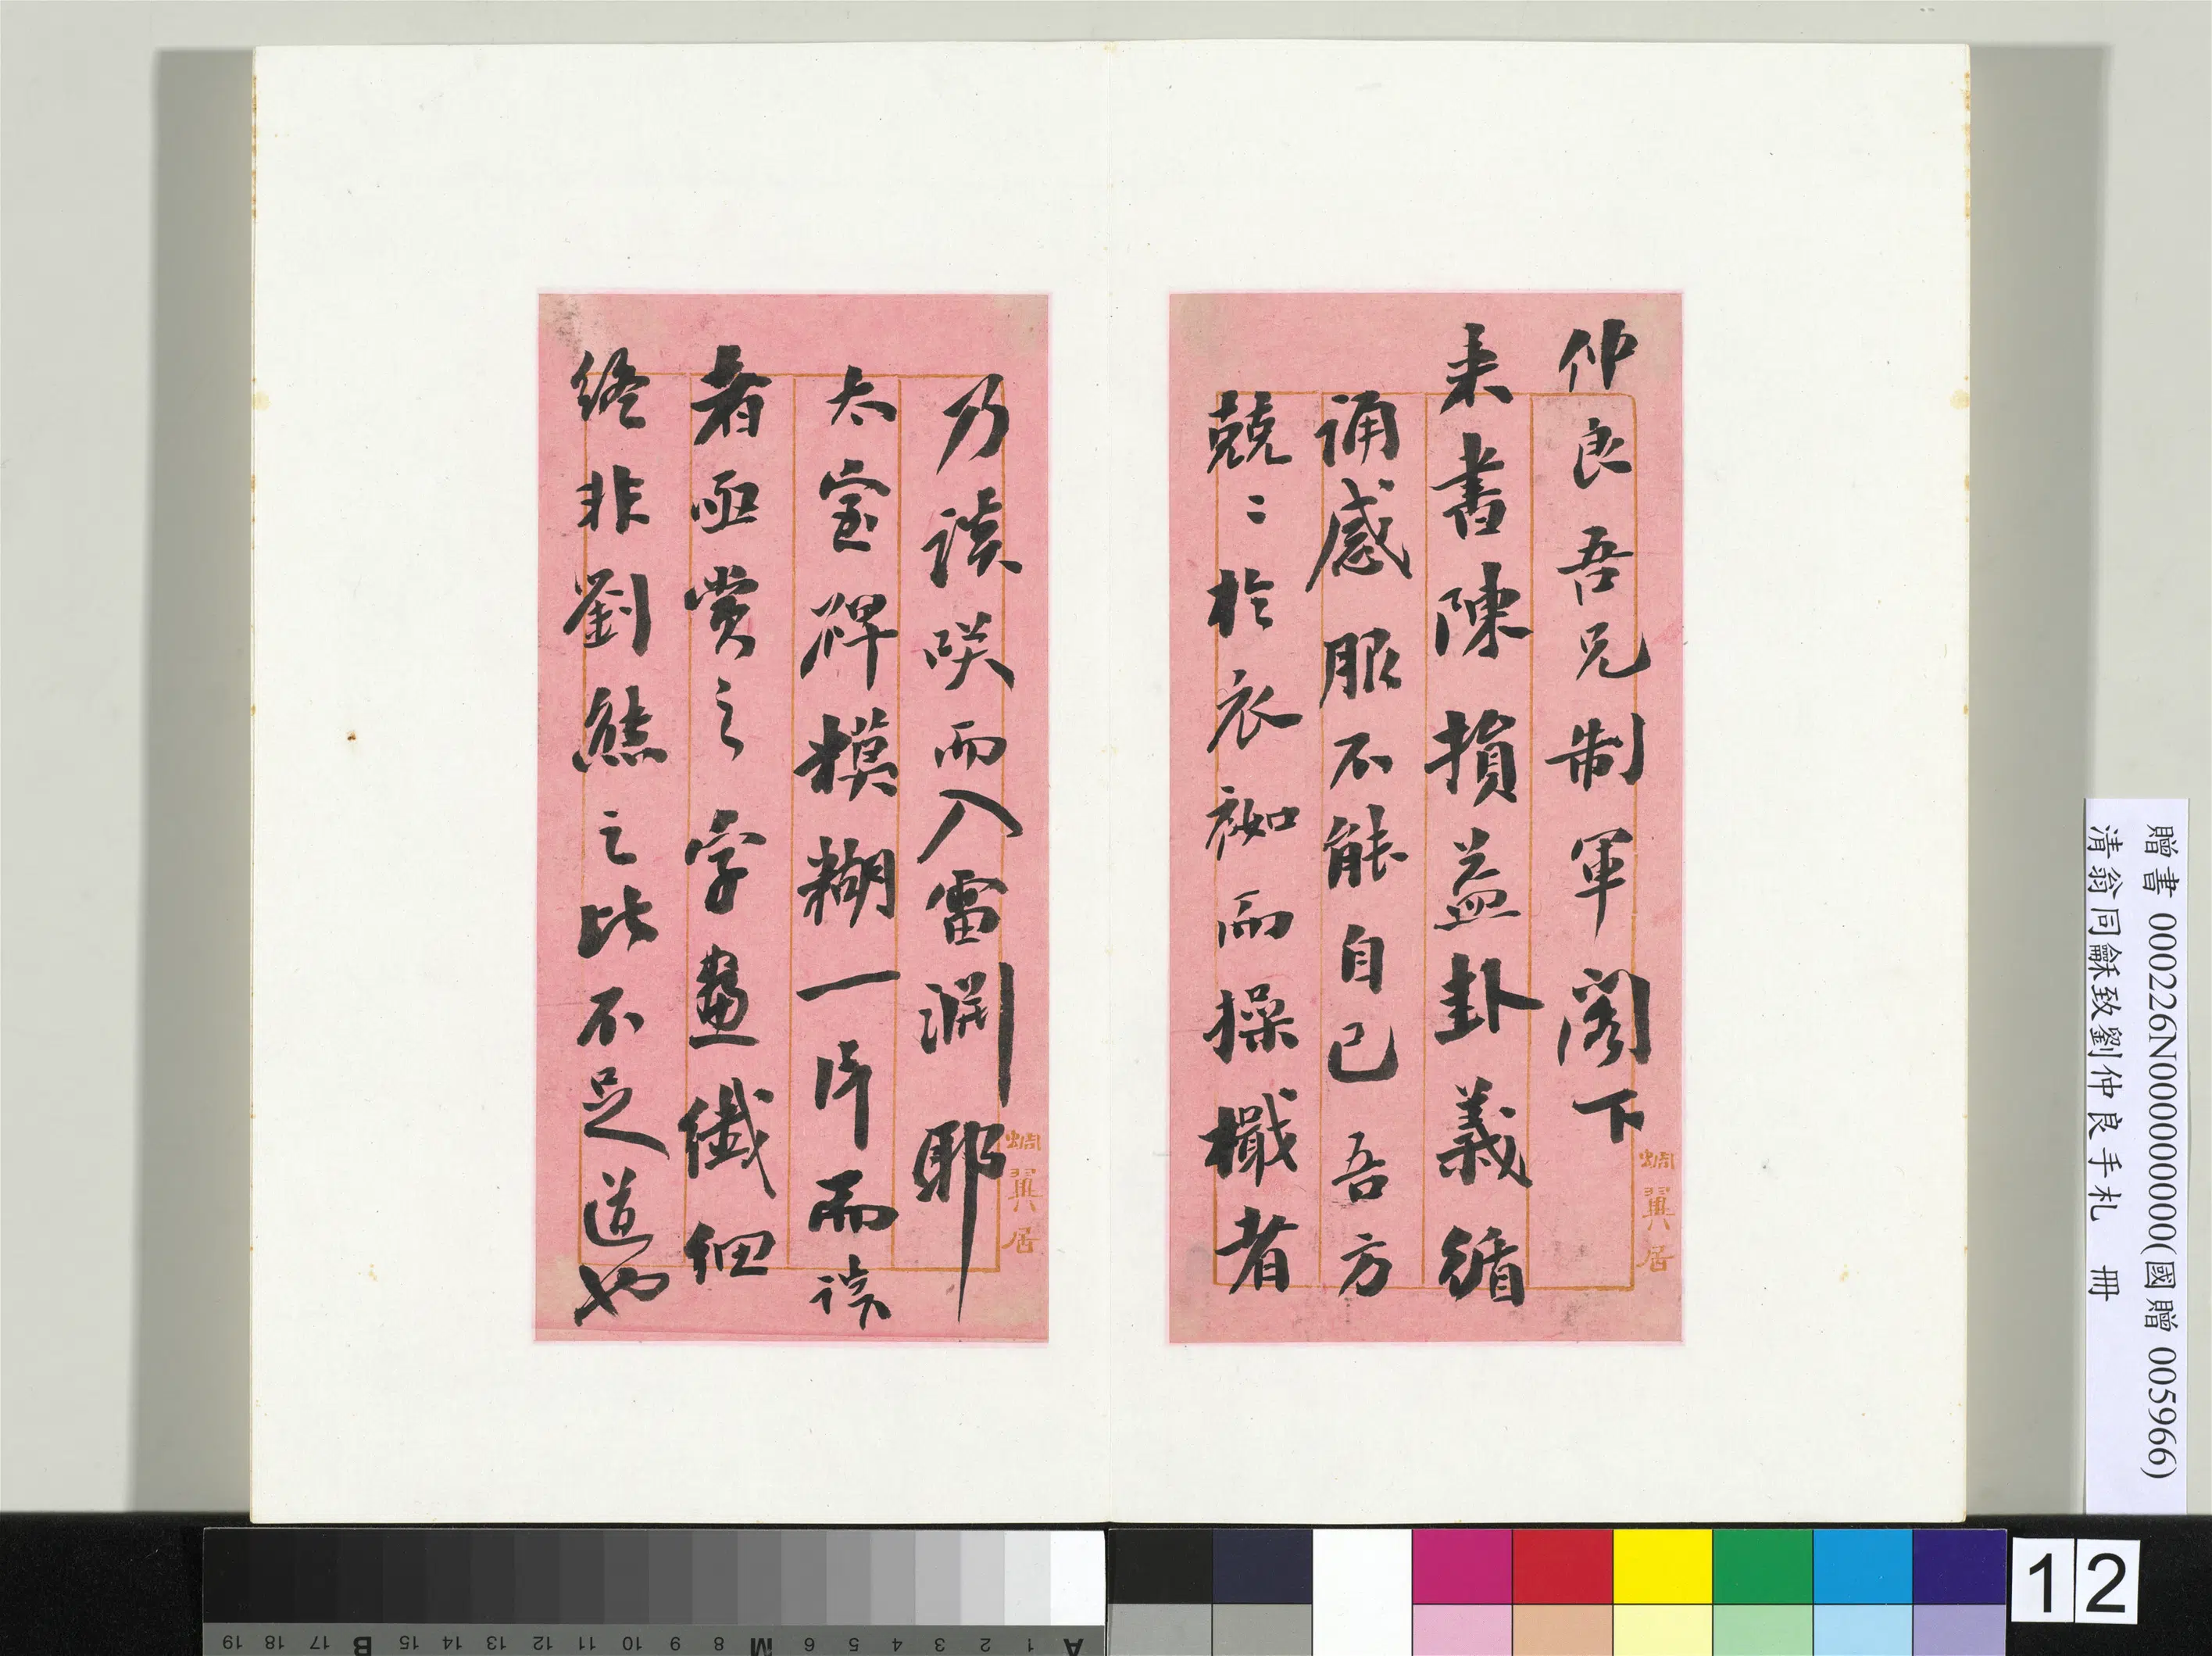 仲良吾兄制軍閣下
来書陳損益卦義循
誦感服不能自已吾方
兢〻於衣袽而操檝者
蜩翼居
乃談咲而入雷淵耶
太室碑模糊一片而談
者亟賞之字畫纖細
終非劉熊之比不足道也
蜩翼居
贈書 000226N000000000(國贈 005966)
清翁同龢致劉仲良手札 冊
A 1 2 3 4 5 6 M 8 9 10 11 12 13 14 15 B 17 18 19
12